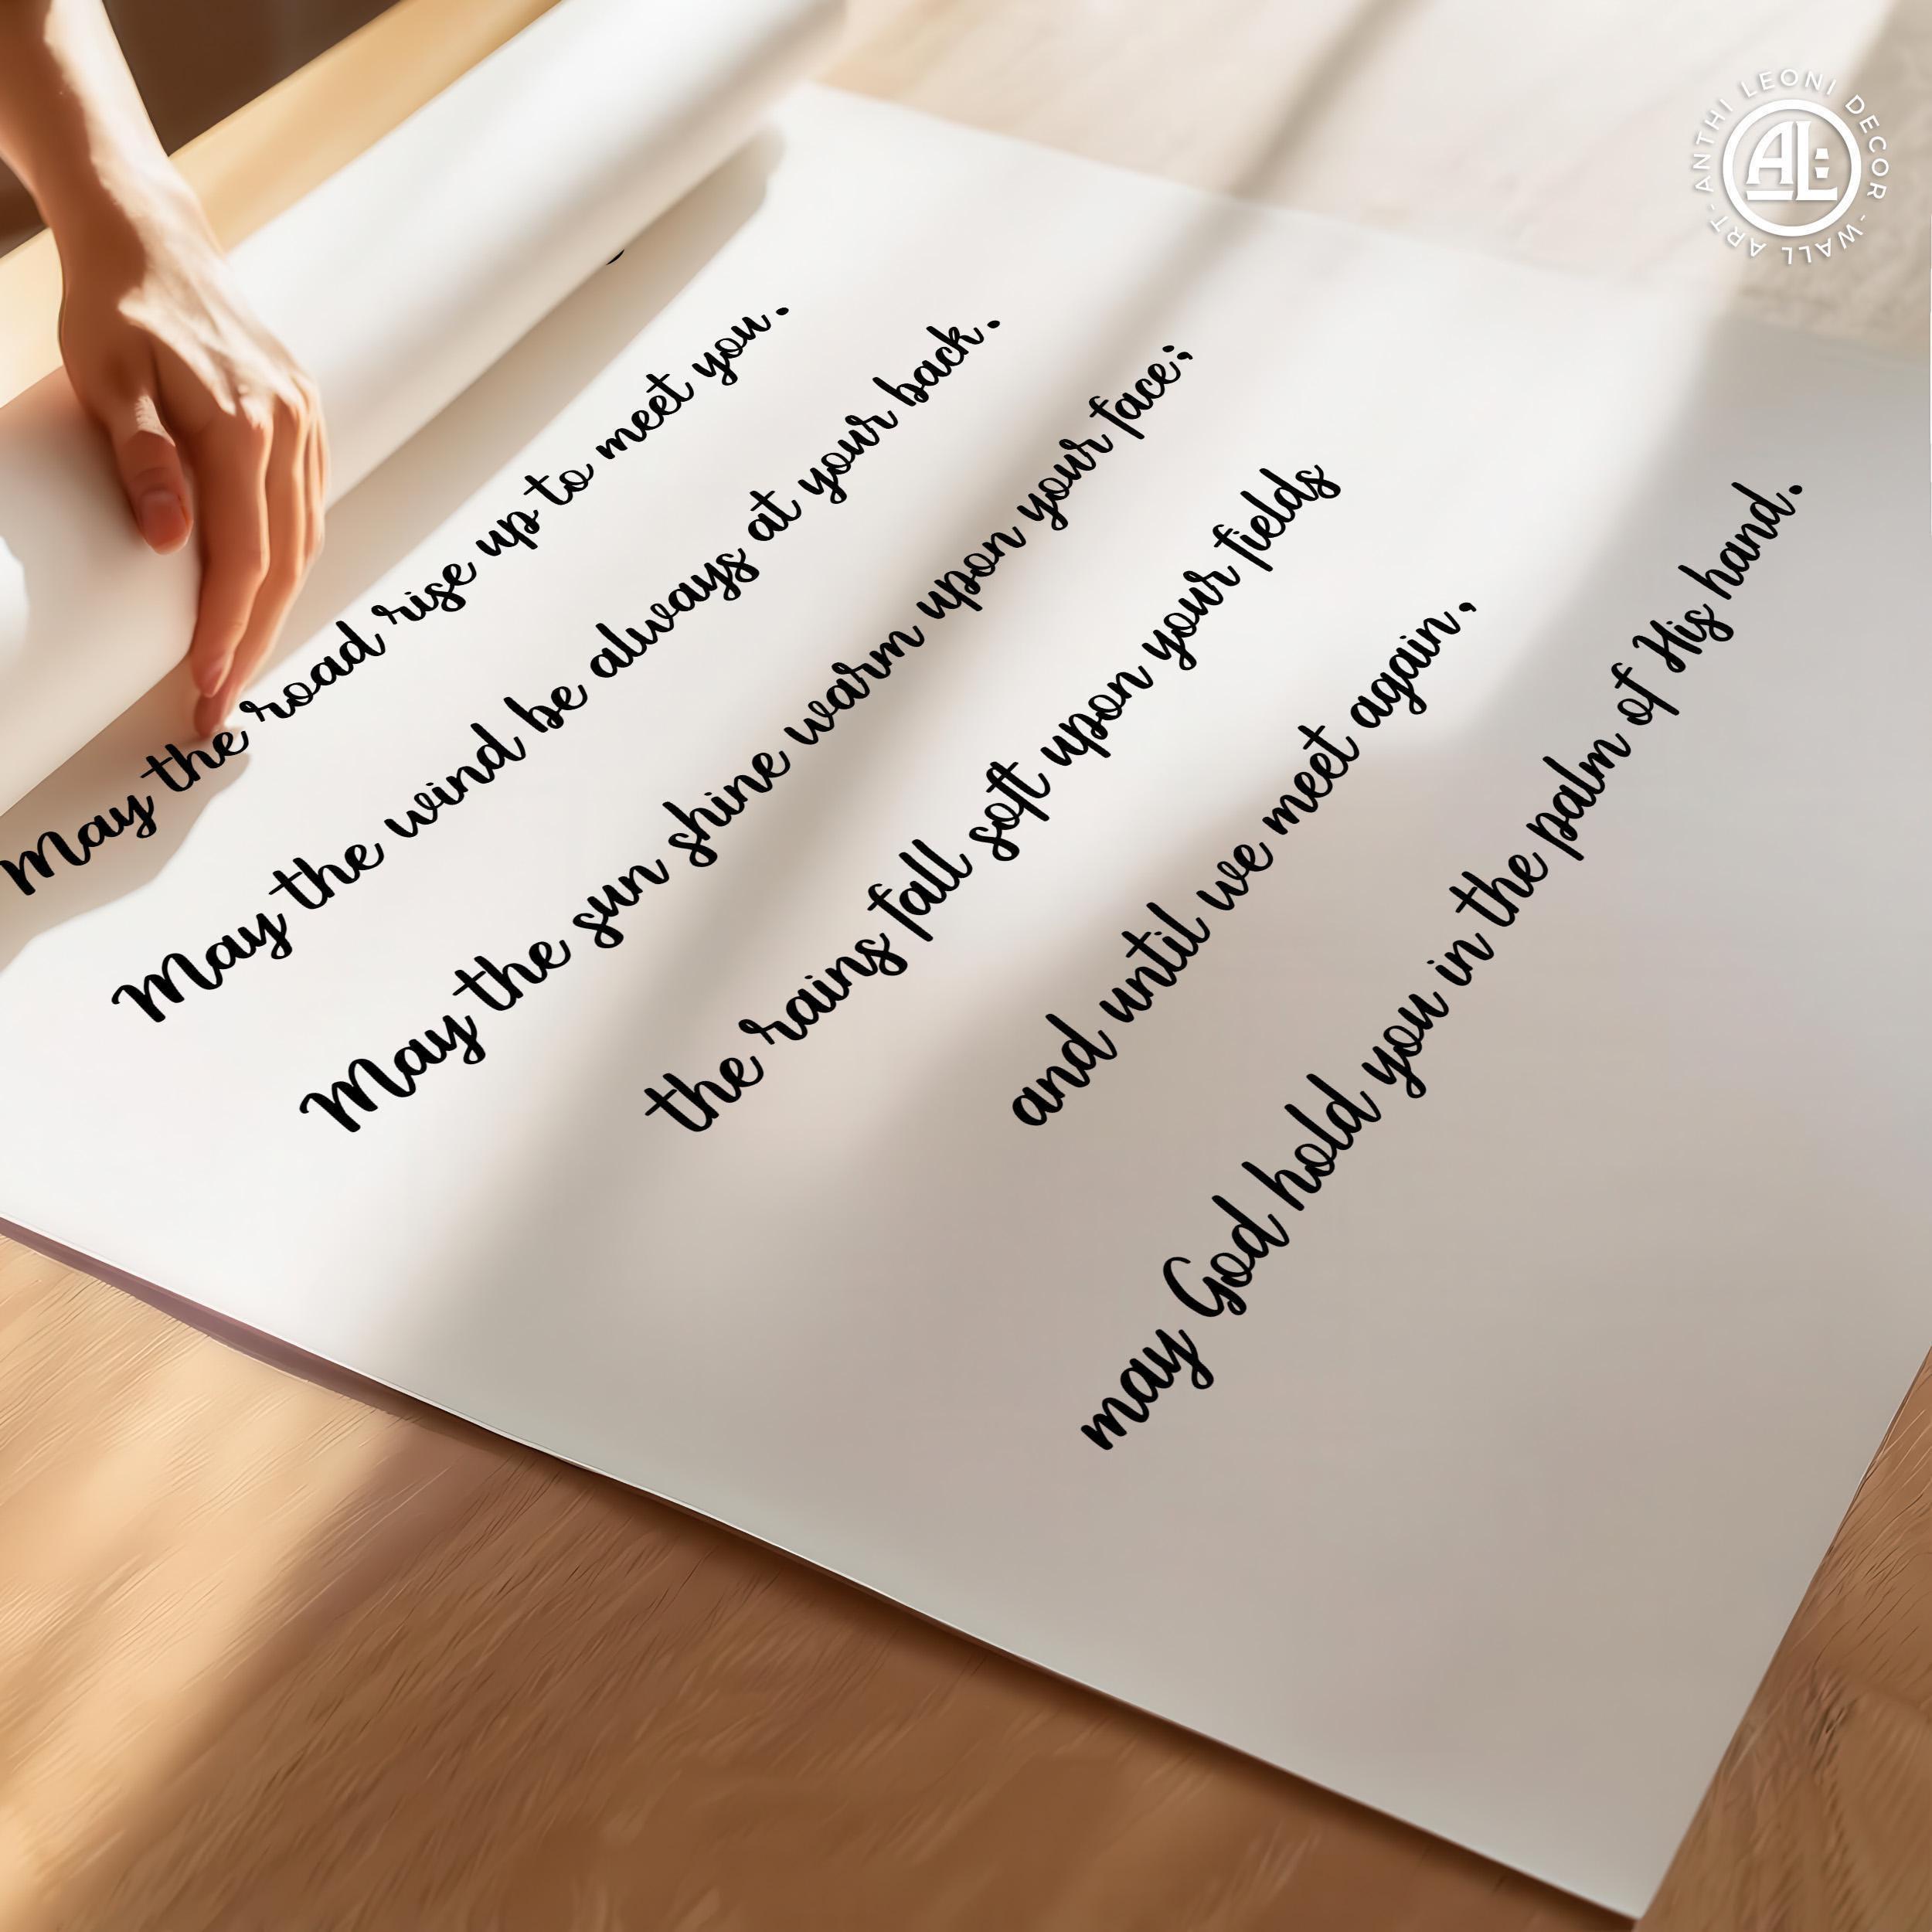 May the road rise up to meet you.
May the wind be always at your back.
May the sun shine warm upon your face;
the rains fall soft upon your fields
and until we meet again,
may God hold you in the palm of His hand.
ANTHI LEONI DECOR - WALL ART -
AL